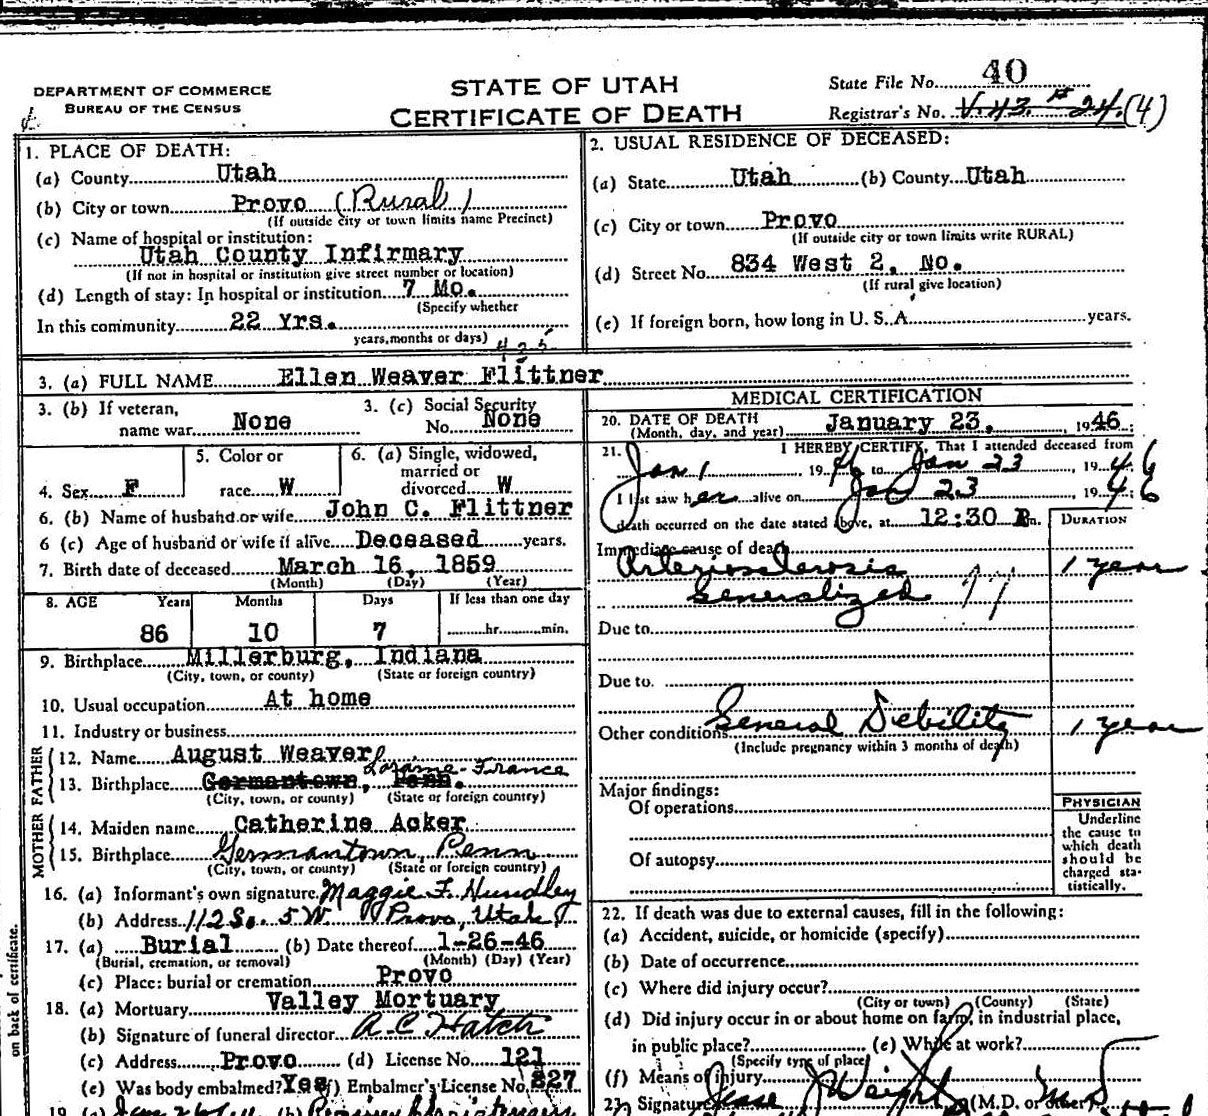 DEPARTMENT OF COMMERCE
BUREAU OF THE CENSUS
STATE OF UTAH
CERTIFICATE OF DEATH
State File No. 40
Registrar's No. V.43. # 24. (4)
1. PLACE OF DEATH:
(a) County Utah
(b) City or town Provo (Rural)
(If outside city or town limits name Precinct)
(c) Name of hospital or institution:
Utah County Infirmary
(If not in hospital or institution give street number or location)
(d) Length of stay: In hospital or institution 7 Mo.
(Specify whether
In this community 22 Yrs.
years, months or days)
425
2. USUAL RESIDENCE OF DECEASED:
(a) State Utah (b) County Utah
(c) City or town Provo
(If outside city or town limits write RURAL)
(d) Street No. 834 West 2, No.
(If rural give location)
(e) If foreign born, how long in U. S. A. years.
3. (a) FULL NAME Ellen Weaver Flittner
3. (b) If veteran,
name war None
3. (c) Social Security
No. None
4. Sex F
5. Color or
race W
6. (a) Single, widowed,
married or
divorced W
6. (b) Name of husband or wife John C. Flittner
6 (c) Age of husband or wife if alive Deceased years.
7. Birth date of deceased March 16, 1859
(Month) (Day) (Year)
8. AGE Years Months Days If less than one day
86 10 7 hr. min.
9. Birthplace Millerburg, Indiana
(City, town, or county) (State or foreign country)
10. Usual occupation At home
11. Industry or business
FATHER
12. Name August Weaver
13. Birthplace Germantown, Penn. Loraine-France
(City, town, or county) (State or foreign country)
MOTHER
14. Maiden name Catherine Acker
15. Birthplace Germantown, Penn
(City, town, or county) (State or foreign country)
16. (a) Informant's own signature Maggie F. Hundley
(b) Address 112 So. 5 W. Provo, Utah
17. (a) Burial (b) Date thereof 1-26-46
(Burial, cremation, or removal) (Month) (Day) (Year)
(c) Place: burial or cremation Provo
18. (a) Mortuary Valley Mortuary
(b) Signature of funeral director A. C. Hatch
(c) Address Provo (d) License No. 121
(e) Was body embalmed? Yes (f) Embalmer's License No. 327
19. (a) (b)
on back of certificate.
MEDICAL CERTIFICATION
20. DATE OF DEATH
(Month, day, and year) January 23, 1946
21. I HEREBY CERTIFY, That I attended deceased from
Jan 1, 1946 to Jan 23, 1946
I last saw her alive on Jan 23, 1946
death occurred on the date stated above, at 12:30 P.m.
DURATION
Immediate cause of death
Arteriosclerosis 1 year
Generalized
Due to
Due to.
Other conditions General Debility 1 year
(Include pregnancy within 3 months of death)
Major findings:
Of operations
Of autopsy
PHYSICIAN
Underline
the cause to
which death
should be
charged sta-
tistically.
22. If death was due to external causes, fill in the following:
(a) Accident, suicide, or homicide (specify)
(b) Date of occurrence
(c) Where did injury occur?
(City or town) (County) (State)
(d) Did injury occur in or about home on farm, in industrial place,
in public place? (e) While at work?
(Specify type of place)
(f) Means of injury
23. Signature Jesse Weight (M.D. or other)